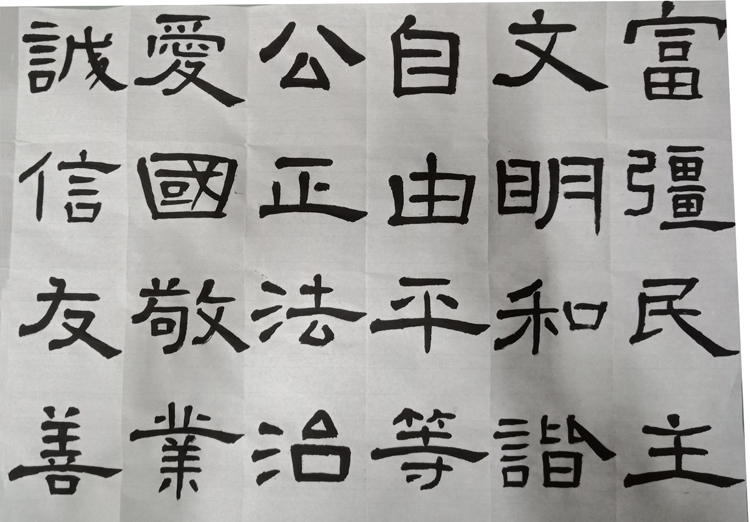 富彊民主
文明和諧
自由平等
公正法治
愛國敬業
誠信友善